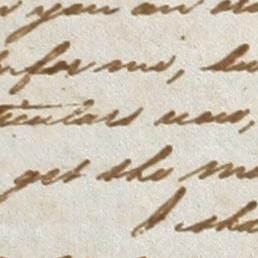 you an
for me,
ticulars now,
get the
I sha